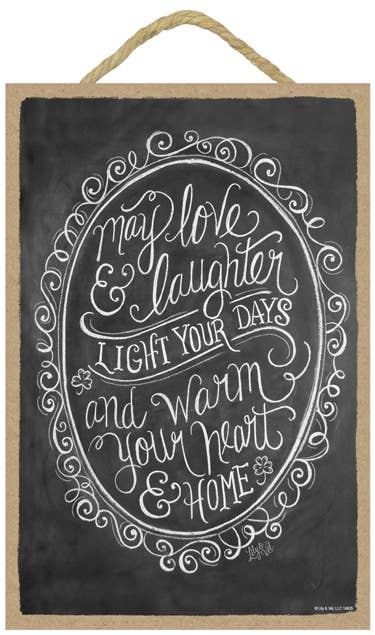 may love
& laughter
LIGHT YOUR DAYS
and warm
your heart
& HOME
Lily & Val
© Lily & Val, LLC